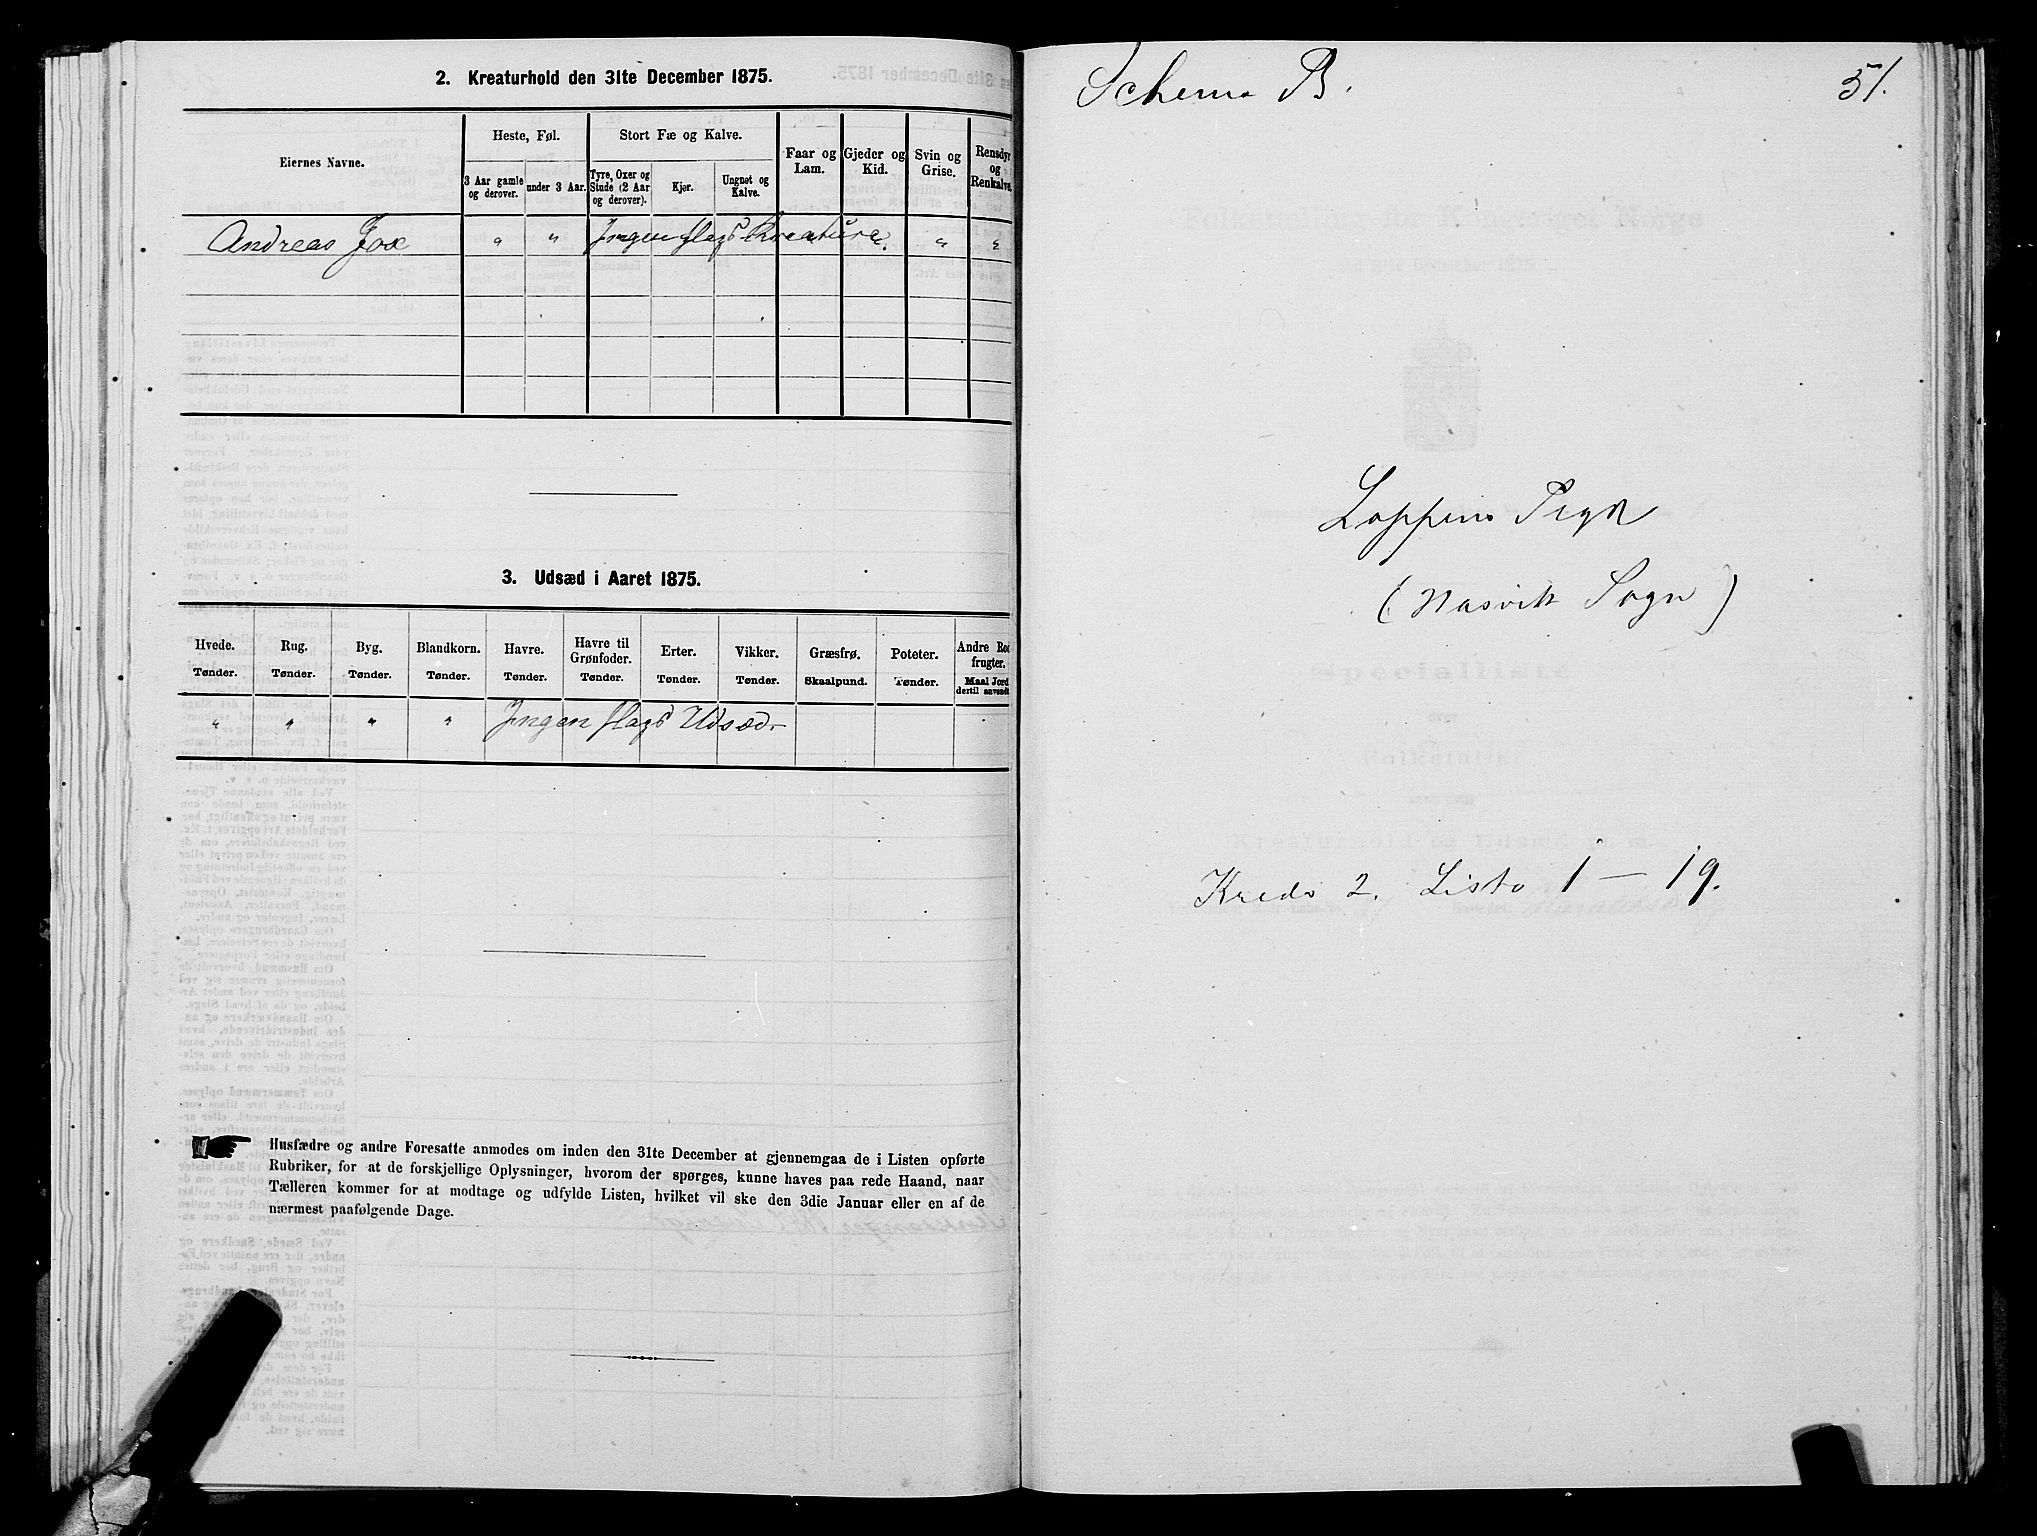 2. Kreaturhold den 31te December 1875.
Eiernes Navne.
Heste, Føl.
3 Aar gamle og derover.
under 3 Aar.
Stort Fæ og Kalve.
Tyre, Oxer og Stude (2 Aar og derover).
Kjør.
Ungnøt og Kalve.
Faar og Lam.
Gjeder og Kid.
Svin og Grise.
Rensdyr og Renkalve.
Andreas " " Ingen slags Kreature. " "
3. Udsæd i Aaret 1875.
Hvede. Tønder.
Rug. Tønder.
Byg. Tønder.
Blandkorn. Tønder.
Havre. Tønder.
Havre til Grønfoder. Tønder.
Erter. Tønder.
Vikker. Tønder.
Græsfrø. Skaalpund.
Poteter. Tønder.
Andre Rod frugter. Maal Jord dertil anvendt
" " " " Ingen slags Udsæd.
Husfædre og andre Foresatte anmodes om inden den 31te December at gjennemgaa de i Listen opførte
Rubriker, for at de forskjellige Oplysninger, hvorom der spørges, kunne haves paa rede Haand, naar
Tælleren kommer for at modtage og udfylde Listen, hvilket vil ske den 3die Januar eller en af de
nærmest paafølgende Dage.
Schema B.
51.
Loppens Pgjd
(Hasvik Sogn)
Kreds 2. Liste 1 — 19.